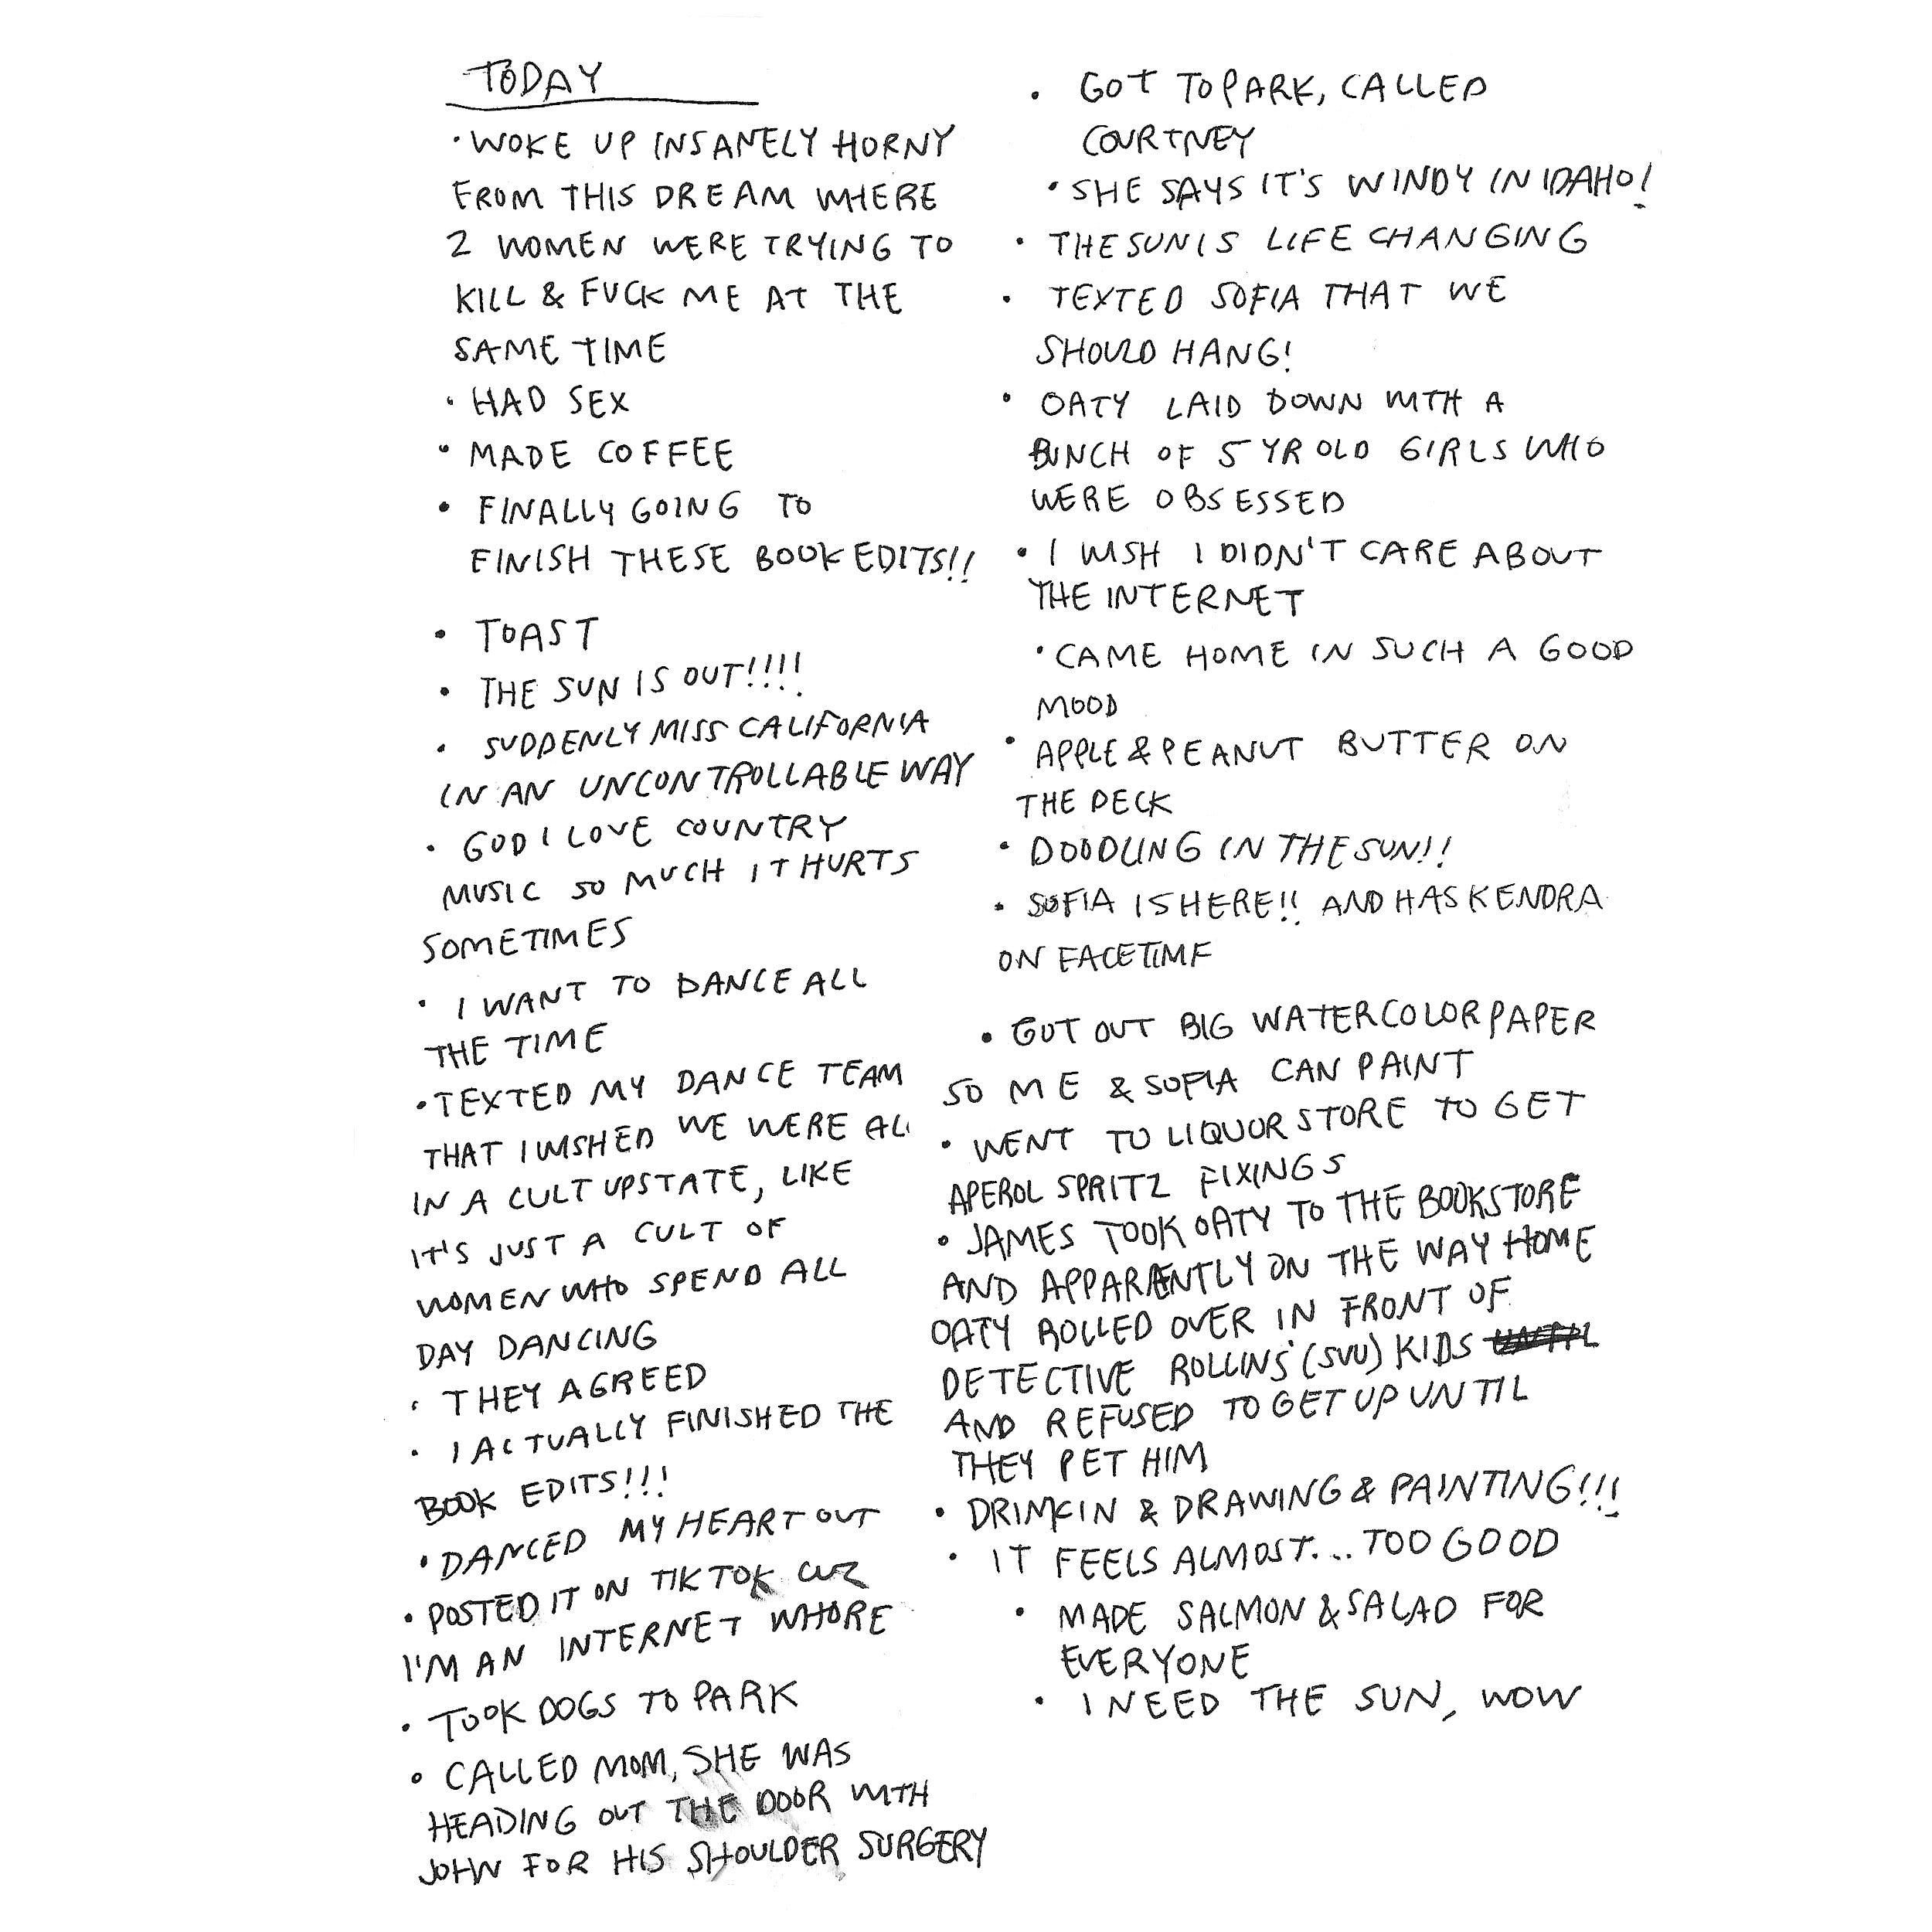 TODAY
· WOKE UP INSANELY HORNY
FROM THIS DREAM WHERE
2 WOMEN WERE TRYING TO
KILL & FUCK ME AT THE
SAME TIME
· HAD SEX
· MADE COFFEE
· FINALLY GOING TO
FINISH THESE BOOK EDITS!!
· TOAST
· THE SUN IS OUT!!!!
· SUDDENLY MISS CALIFORNIA
IN AN UNCONTROLLABLE WAY
· GOD I LOVE COUNTRY
MUSIC SO MUCH IT HURTS
SOMETIMES
· I WANT TO DANCE ALL
THE TIME
· TEXTED MY DANCE TEAM
THAT I WISHED WE WERE ALL
IN A CULT UPSTATE, LIKE
IT'S JUST A CULT OF
WOMEN WHO SPEND ALL
DAY DANCING
· THEY AGREED
· I ACTUALLY FINISHED THE
BOOK EDITS!!!
· DANCED MY HEART OUT
· POSTED IT ON TIKTOK CUZ
I'M AN INTERNET WHORE
· TOOK DOGS TO PARK
· CALLED MOM, SHE WAS
HEADING OUT THE DOOR WITH
JOHN FOR HIS SHOULDER SURGERY
· GOT TO PARK, CALLED
COURTNEY
· SHE SAYS IT'S WINDY IN IDAHO!
· THE SUN IS LIFE CHANGING
· TEXTED SOFIA THAT WE
SHOULD HANG!
· OATY LAID DOWN WITH A
BUNCH OF 5 YR OLD GIRLS WHO
WERE OBSESSED
· I WISH I DIDN'T CARE ABOUT
THE INTERNET
· CAME HOME IN SUCH A GOOD
MOOD
· APPLE & PEANUT BUTTER ON
THE DECK
· DOODLING IN THE SUN!!
· SOFIA IS HERE!! AND HAS KENDRA
ON FACETIME
· GOT OUT BIG WATERCOLOR PAPER
SO ME & SOFIA CAN PAINT
· WENT TO LIQUOR STORE TO GET
APEROL SPRITZ FIXINGS
· JAMES TOOK OATY TO THE BOOKSTORE
AND APPARENTLY ON THE WAY HOME
OATY ROLLED OVER IN FRONT OF
DETECTIVE ROLLINS' (SVU) KIDS
AND REFUSED TO GET UP UNTIL
THEY PET HIM
· DRINKIN & DRAWING & PAINTING!!!
· IT FEELS ALMOST... TOO GOOD
· MADE SALMON & SALAD FOR
EVERYONE
· I NEED THE SUN, WOW